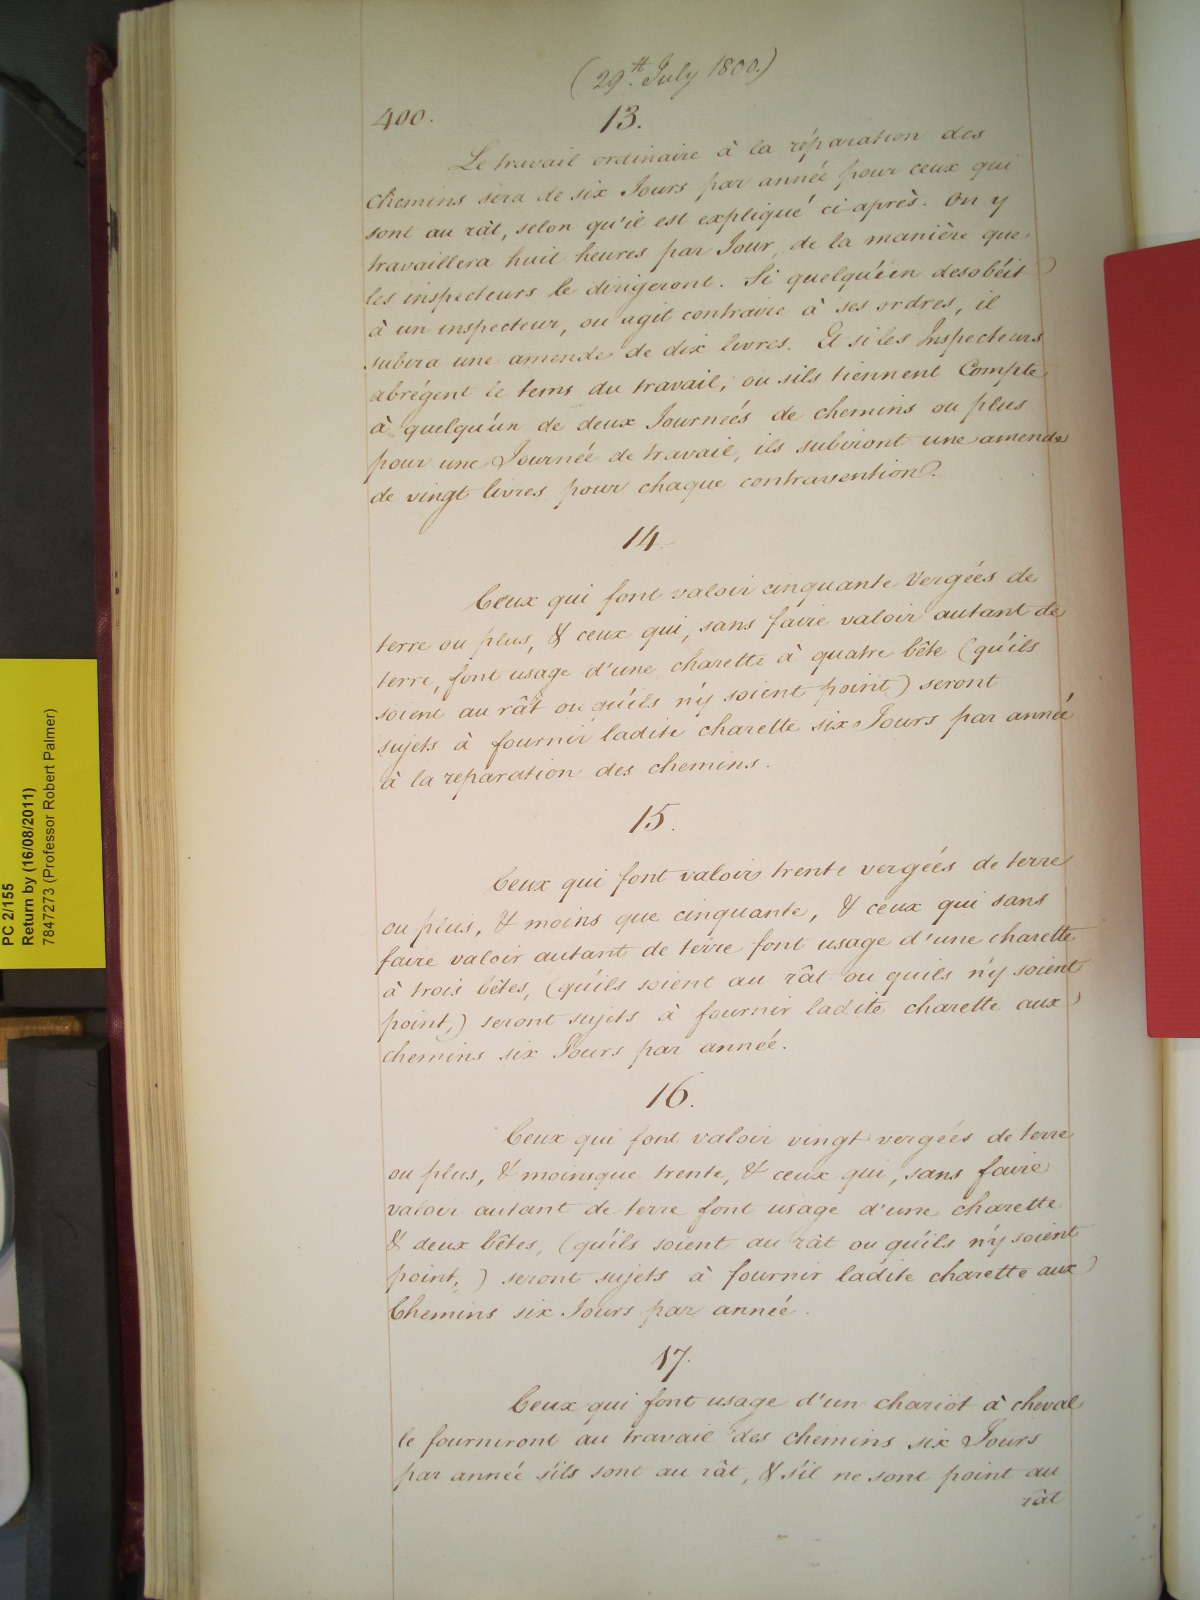 (29th July 1800.)
400.
13.
Le travail ordinaire à la réparation des
chemins sera de six Jours par année pour ceux qui
sont au rât, selon qu'il est expliqué ci-après. On y
travaillera huit heures par Jour, de la manière que
les inspecteurs le dirigeront. Si quelqu'un desobéit
à un inspecteur, ou agit contraire à ses ordres, il
subira une amende de dix livres. Et si les Inspecteurs
abrégent le tems du travail, ou sils tiennent Compte
à quelqu'un de deux Journeés de chemins ou plus
pour une Journée de travail, ils subiront une amende
de vingt livres pour chaque contravention.
14.
Ceux qui font valoir cinquante Vergées de
terre ou plus, & ceux qui, sans faire valoir autant de
terre, font usage d'une charette à quatre bête (qu'ils
soient au rât ou qu'ils n'y soient point) seront
sujets à fournir ladite charette six Jours par année
à la reparation des chemins.
15.
Ceux qui font valoir trente vergeés de terre
ou plus, & moins que cinquante, & ceux qui sans
faire valoir autant de terre font usage d'une charette
à trois bêtes, (qu'ils soient au rât ou quils n'y soient
point,) seront sujets à fournir ladite charette aux
chemins six Jours par année.
16.
Ceux qui font valoir vingt vergeés de terre
ou plus, & moinsque trente, & ceux qui, sans faire
valoir autant de terre font usage d'une charette
& deux bêtes, (qu'ils soient au rât ou qu'ils n'y soient
point,) seront sujets à fournir ladite charette aux
Chemins six Jours par année.
17.
Ceux qui font usage d'un chariot à cheval
le fourniront au travail des chemins six Jours
par année s'ils sont au rât, & s'il ne sont point au
rât
PC 2/155
Return by (16/08/2011)
7847273 (Professor Robert Palmer)